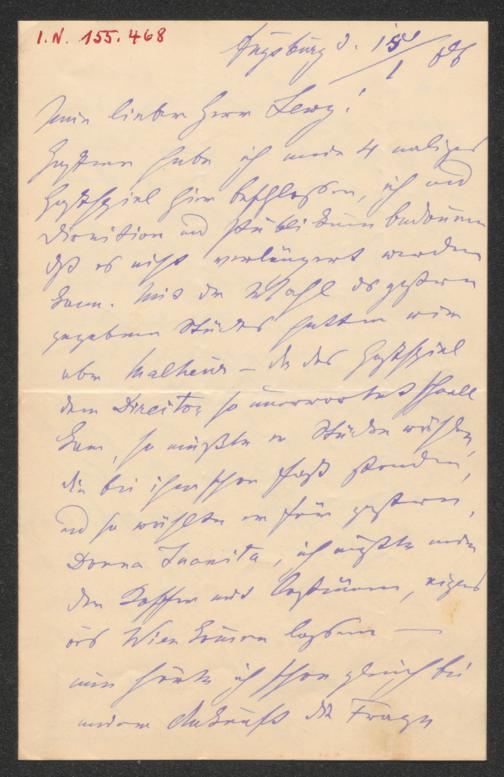 I.N. 155.468
Augsburg d. 15/1 86
Mein lieber Herr Lewy!
Gestern habe ich mein 4 maliges
Gastspiel hier beschlossen, ich und
Direction und Publikum bedauern
daß es nicht verlängert werden
kann. Mit der Wahl des gestern
gegebenen Stückes hatten wir
aber Malheur – da das Gastspiel
dem Director so unerwartet schnell
kam, so mußte er Stücke wählen,
die bei ihm schon fest standen,
und so wählte er für gestern,
Donna Juanita, ich mußte mir
den Koffer mit Costümen, eigens
aus Wien kommen lassen —
nun hörte ich schon gleich bei
meiner Ankunft die Frage